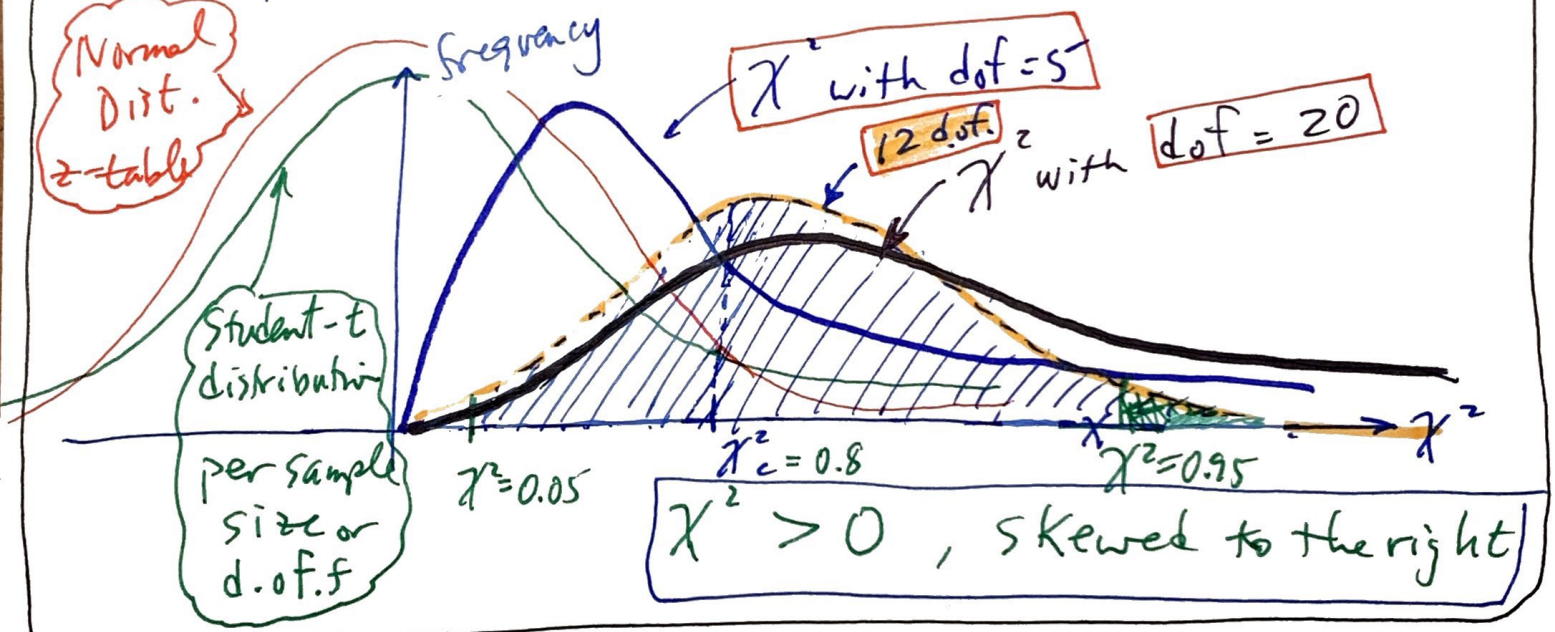 Normal
Dist.
z-table
frequency
χ² with dof = 5
12 d.of.
χ² with dof = 20
Student-t
distribution
per sample
size or
d.of.f
χ²=0.05
χ²c = 0.8
χ²=0.95
χ²
χ² > 0 , skewed to the right